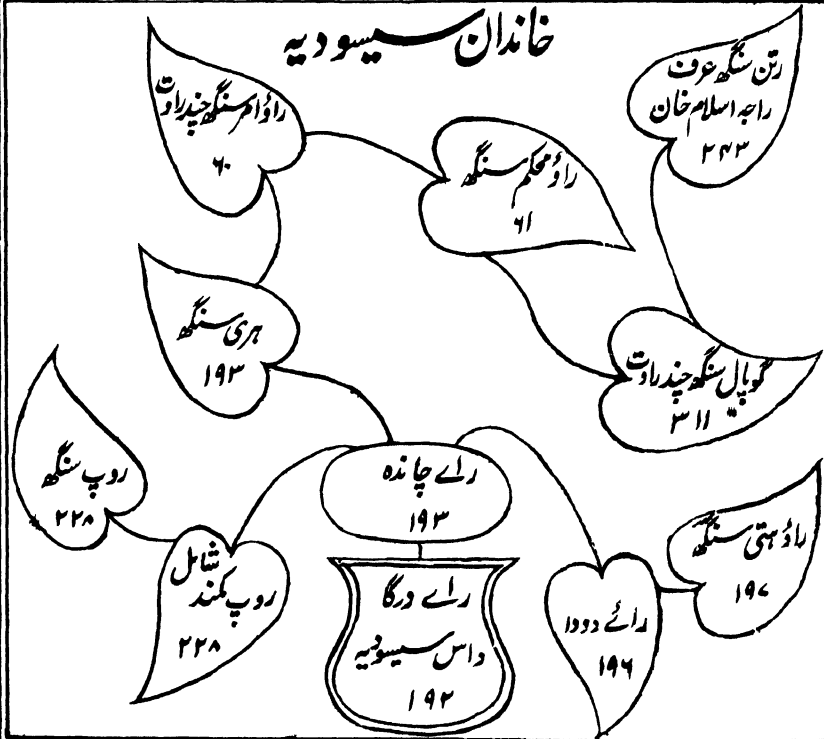 خاندان سیسودیہ
رتن سنگھ عرف
راجہ اسلام خان
۲۴۳
راؤ امر سنگھ چندراوت
۶۰
راؤ محکم سنگھ
۶۱
ہری سنگھ
۱۹۳
گوپال سنگھ چندراوت
۳۱۱
روپ سنگھ
۲۲۸
راے چاندہ
۱۹۳
راؤ ہتی سنگھ
۱۹۷
شامل
روپ مکند
۲۲۸
راے درگا
داس سیسودیہ
۱۹۲
رائے دودا
۱۹۶